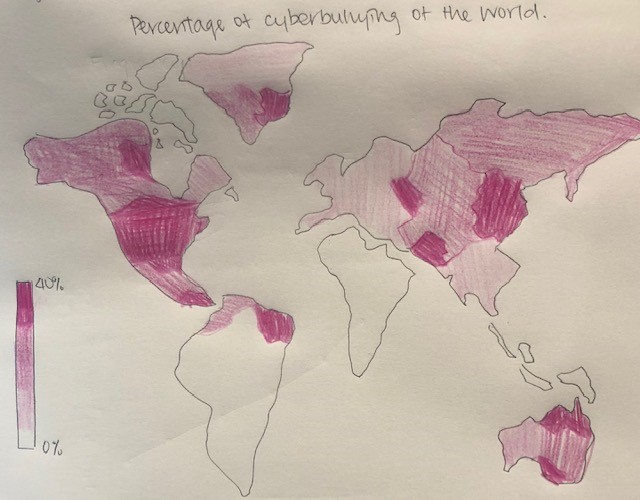 Percentage of cyberbullying of the world.
40%
0%